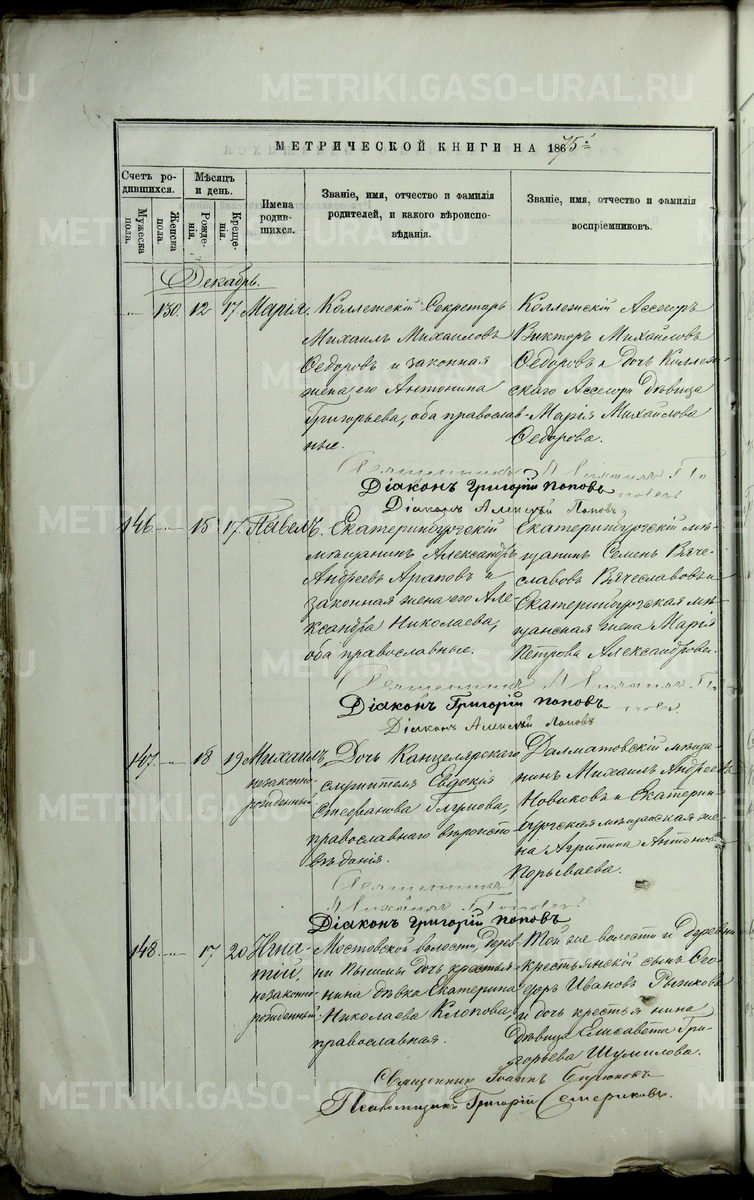 METRIKI.GASO-URAL.RU
МЕТРИЧЕСКОЙ КНИГИ НА 1875
Счетъ родившихся.
Мужеска пола.
Женска пола.
Мѣсяцъ и день.
Рожденія.
Крещенія.
Имена родившихся.
Званіе, имя, отчество и фамилія родителей, и какого вѣроисповѣданія.
Званіе, имя, отчество и фамилія воспріемниковъ.
Декабрь.
130. 12 17 Марія.
Коллежскій Секретарь
Михаилъ Михаиловъ
Ѳедоровъ и законная
жена его Антонина
Григорьева, оба православ-
ные.
Коллежскій Ассесоръ
Викторъ Михайловъ
Ѳедоровъ и дочь Коллеж-
скаго Ассесора дѣвица
Марія Михайлова
Ѳедорова.
Священникъ
Діаконъ Григорій Поповъ
Діаконъ Алексѣй Поповъ
146. 15 17 Павелъ.
Екатеринбургскій
мѣщанинъ Александръ
Андреевъ Араповъ и
законная жена его Але-
ксандра Николаева,
оба православные.
Екатеринбургскій мѣ-
щанинъ Семенъ Вяче-
славовъ Вячеславовъ и
Екатеринбургская мѣ-
щанская жена Марія
Петрова Александрова.
Священникъ
Діаконъ Григорій Поповъ
Діаконъ Алексѣй Поповъ
147. 18 19 Михаилъ
незаконно-
рожденный
Дочь Канцелярскаго
служителя Евдокія
Стефанова
православнаго вѣроиспо-
вѣданія.
Далматовскій мѣща-
нинъ Михаилъ Андреевъ
Новиковъ и Екатерин-
бургская мѣщанская же-
на Агрипина Антонова
Порываева.
Священникъ
Діаконъ Григорій Поповъ
148. 17 20 Игна-
тій,
незаконно-
рожденный
Мостовской волости, дерев-
ни Пышмы дочь крестья-
нина дѣвка Екатерина
Николаева Клопова
православная.
Той же волости и деревни
крестьянскій сынъ Ѳео-
доръ Ивановъ Рыжковъ
и дочь крестьянина
дѣвица Елисавета Гри-
горьева Шумилова.
Священникъ Іоаннъ
Псаломщикъ Григорій Семериковъ.